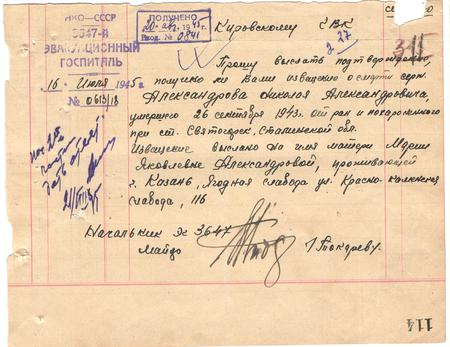 НКО—СССР
3647-й
ЭВАКУАЦИОННЫЙ
ГОСПИТАЛЬ
16 Июня 1945 г.
№ 0613/18
ПОЛУЧЕНО
1945 г.
Вход. № 0841
Куровскому РВК
Прошу выслать подтверждение,
получено ли Вами извещение о смерти серж.
Александрова Николая Александровича,
умершего 26 сентября 1943г. от ран и похороненного
при ст. Святогорск, Сталинской обл.
Извещение выслано на имя матери Марии
Яковлевны Александровой, проживающей
г. Казань, Ягодная слабода ул. Красно-
слабода, 116
Начальник ЭГ 3647
майор
/Токарев/
315
114